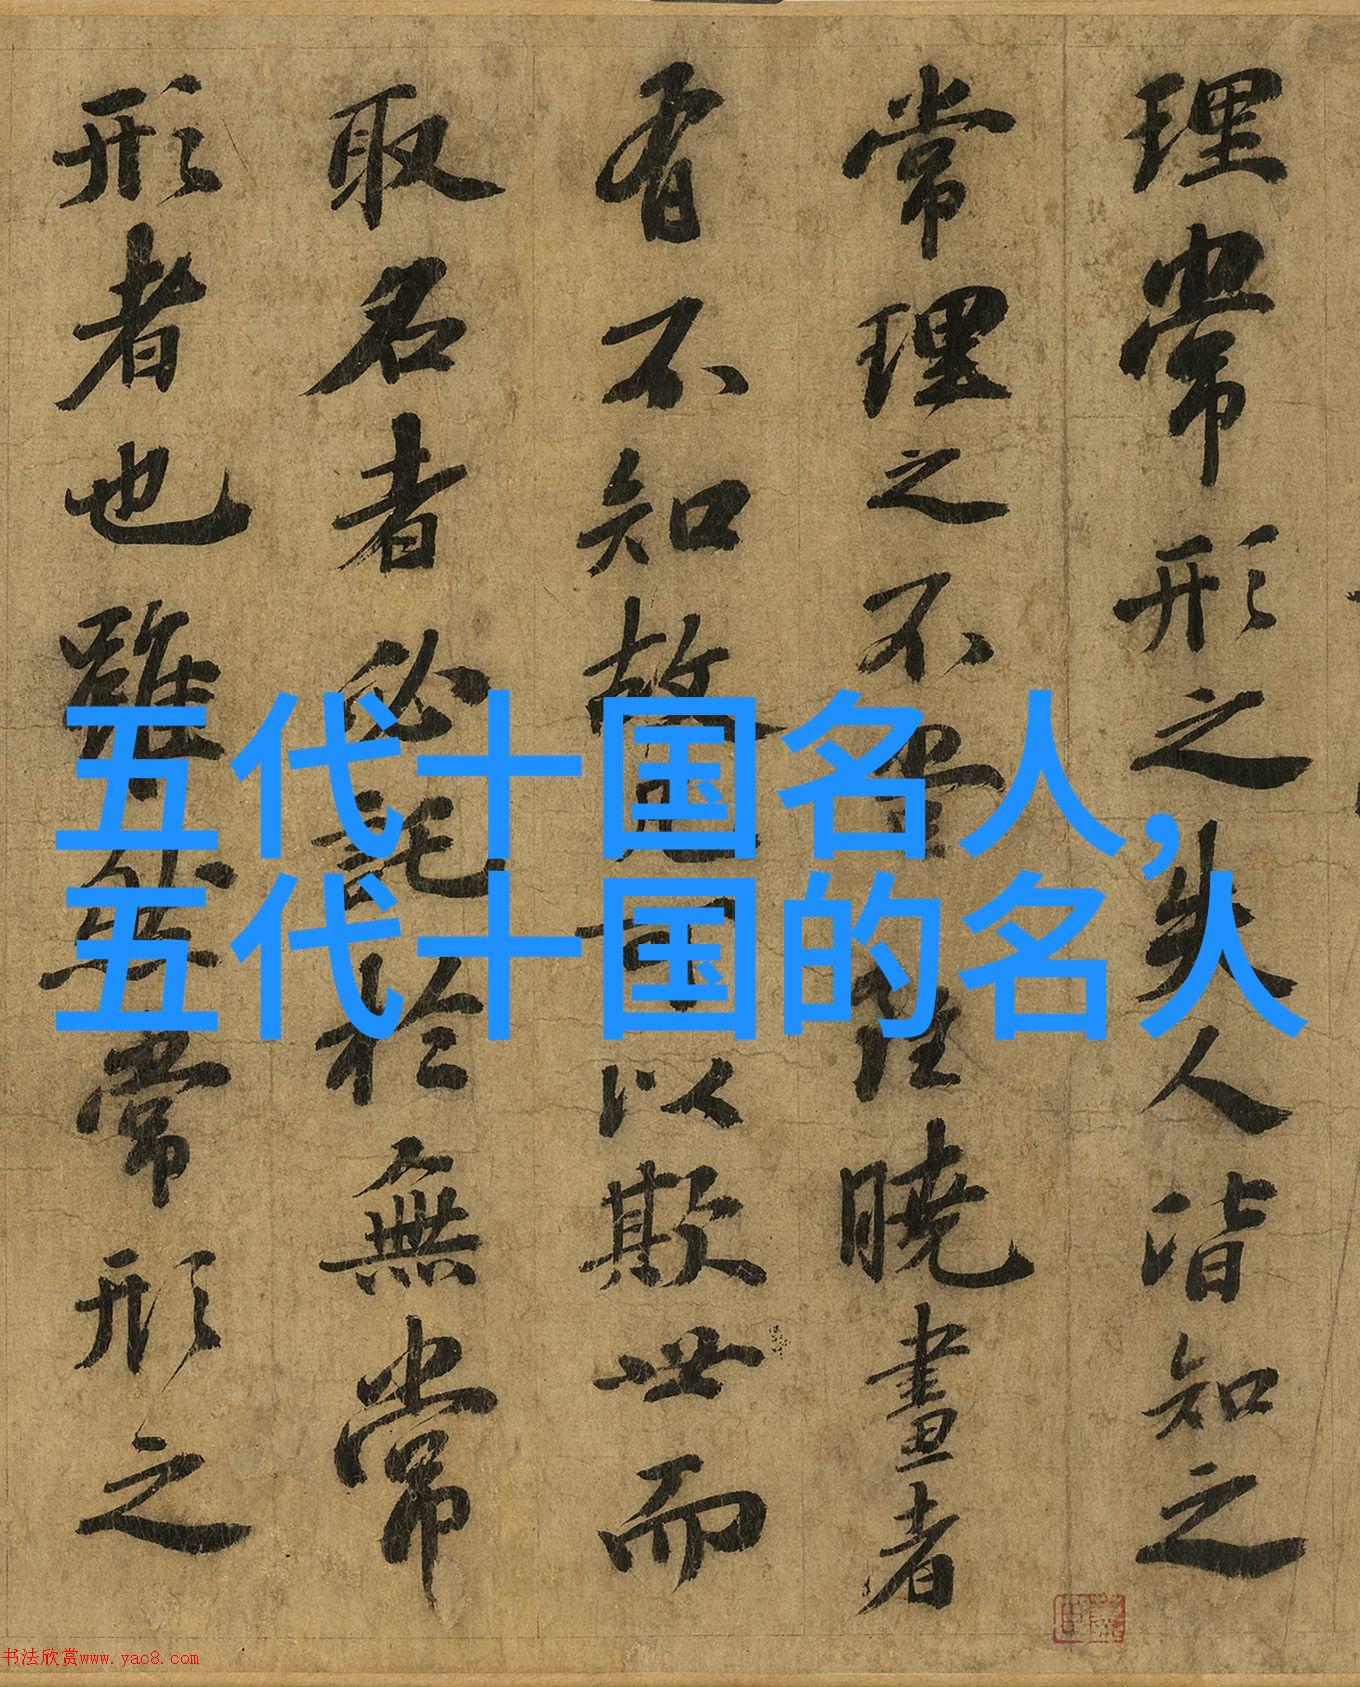 理常形之失人皆知之
常理之不當雖曉畫者
有不知故凡可以欺世而
取名者必託於無常
形者也雖然常形之
五代十国名人,
五代十国的名人
书法欣赏www.yac8.com